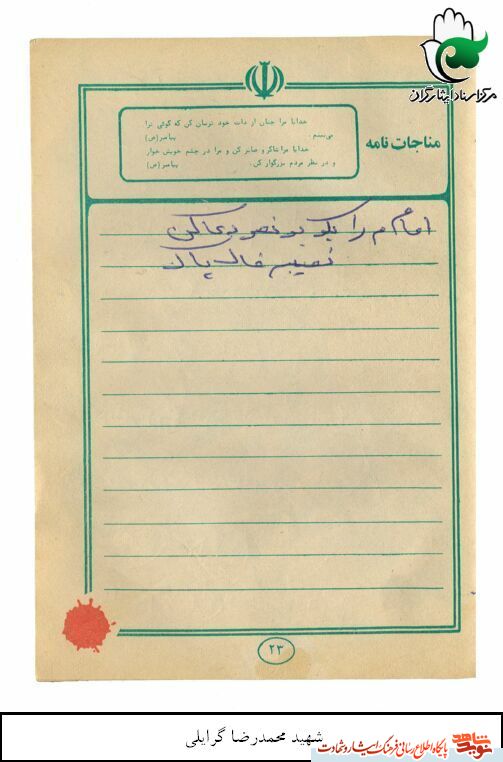 مرکز اسناد ایثارگران
مناجات نامه
خدایا مرا چنان از ذات خود ترسان کن که گوئی ترا
می‌بینم. پیامبر(ص)
خدایا مرا شاکر و صابر کن و مرا در چشم خویش خوار
و در نظر مردم بزرگوار کن. پیامبر(ص)
امامم را بگو
کن
نصیبم خاک پاک
۲۳
شهید محمدرضا گرایلی
نوید شاهد
پایگاه اطلاع رسانی فرهنگ ایثار و شهادت